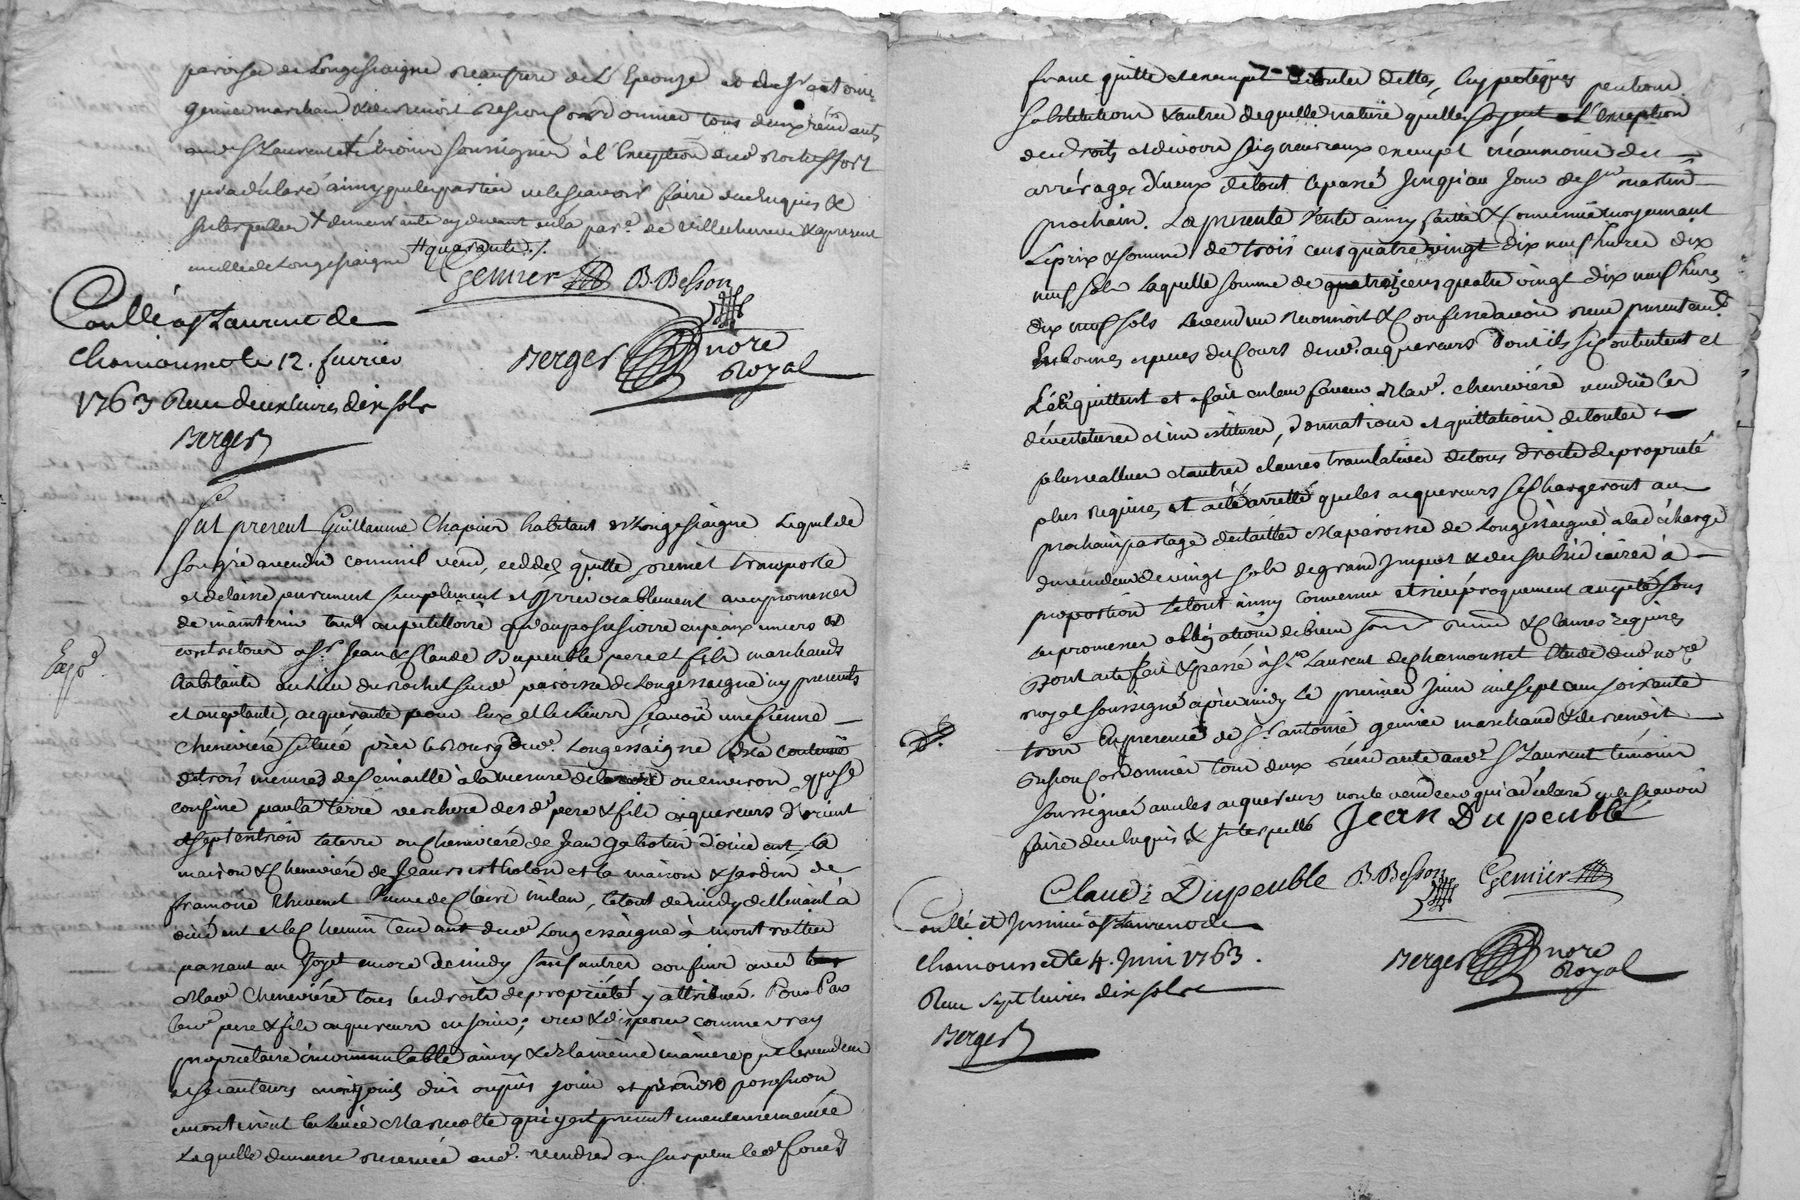 paroisse de Longessaigne beaufrere de l'Epouze et de sr antoine
genier marchand & de benoit besson cordonnier tous deux residants
aud. st Laurent témoins soussignés à l'exception dud. Rochessort
qui a déclaré ainsy que les parties ne le scavoir faire de ce enquis &
interpellés + demeurante cy devant en la par.e de villecheneve & a present
en celle de Longessaigne # quarante ./.
Genier B. Besson
Conllé a st Laurent de
chamousset le 12. fevrier
1763 Reçu deux livres dix sols
Berger
Berger nore
Royal
Fut present Guillaume Chapuis habitant de Longessaigne Lequel de
son gré a vendu comme il vend, cedde, quitte, remet transporte
et delaisse purement simplement et irrévocablement avec promesse
de maintenir tant au petitoire qu'au possessoire envers et
contre tous a sr Jean & Claude Dupeuble pere et fils marchands
habitants au lieu du rochet sud. paroisse de Longessaigne icy presents
Expé.
et acceptants, acquereurs pour eux et les leurs scavoir une sienne
cheneviere située près le bourg dud. Longessaigne de la contenue
de trois mesures de semaille à la mesure de ou environ, qui se
confine par la terre verchere desd. pere & fils acquereurs d'orient
& septentrion la terre ou cheneviere de Jean d'occident, la
maison & cheneviere de Jean et la maison & jardin de
françoise thivent veuve de Claire milan, le tout de midy declinant à
occident et le chemin tendant dud. Longessaigne à montrottier
passant au encore de midy sauf autres confins avec
de lad. cheneviere tous les droits de proprieté y attribués. Pour par
lesd. pere & fils acquereurs en jouir, user & disposer comme vray
propriétaire incommutable ainsy & de la même maniere que le vendeur
et ses auteurs en ont jouis dû ou pû jouir et prendre possession
la recolte qui y est presentement
Laquelle demeure reservée aud. vendeur
franc quitte et exempt de toutes dettes, hypoteques pensions
substitutions & autres de quelle nature qu'elles soyent a l'exception
des droits et devoirs seigneuriaux exempt neanmoins des
arrérages d'iceux de tout le passé jusqu'au jour de st martin
prochain. La presente vente ainsy faitte & convenue moyennant
le prix & somme de trois cens quatre vingt dix neuf livres dix
neuf sols Laquelle somme de cens quatre vingt dix neuf livres
dix neuf sols le vendeur reconnoit & confesse avoir reçu presentem.t
en bonnes especes du cours desd. acquereurs dont il se contentent et
les quittent et a fait en leur faveur de lad. cheneviere vendue les
devestitures et investitures, donnations et quittations de toutes
plus values et autres clauses translatives de tous droits de proprieté
plus requises, et a été arretté que les acquereurs se chargeront au
prochain partage des tailles de la paroisse de Longessaigne à la décharge
du vendeur de vingt sols de grand impost & des subsidiaires à
proportion le tout ainsy convenu et reciproquement accepté sous
les promesses obligations de biens & clauses requises
Dont acte fait & passé à st Laurent de Chamousset Etude dud. nore
royal soussigné après midy le premier Juin mil sept cens soixante
trois En presence de sr antoine genier marchand & de benoit
besson cordonnier tous deux residants aud. st Laurent témoins
soussignés avec les acquereurs non le vendeur qui a déclaré ne le scavoir
faire de ce enquis & interpellé Jean Dupeuble
Claude Dupeuble B. Besson Genier
Conllé et Insinué a st Laurent de
chamousset le 4. Juin 1763.
Reçu sept livres dix sols
Berger
Berger nore
Royal